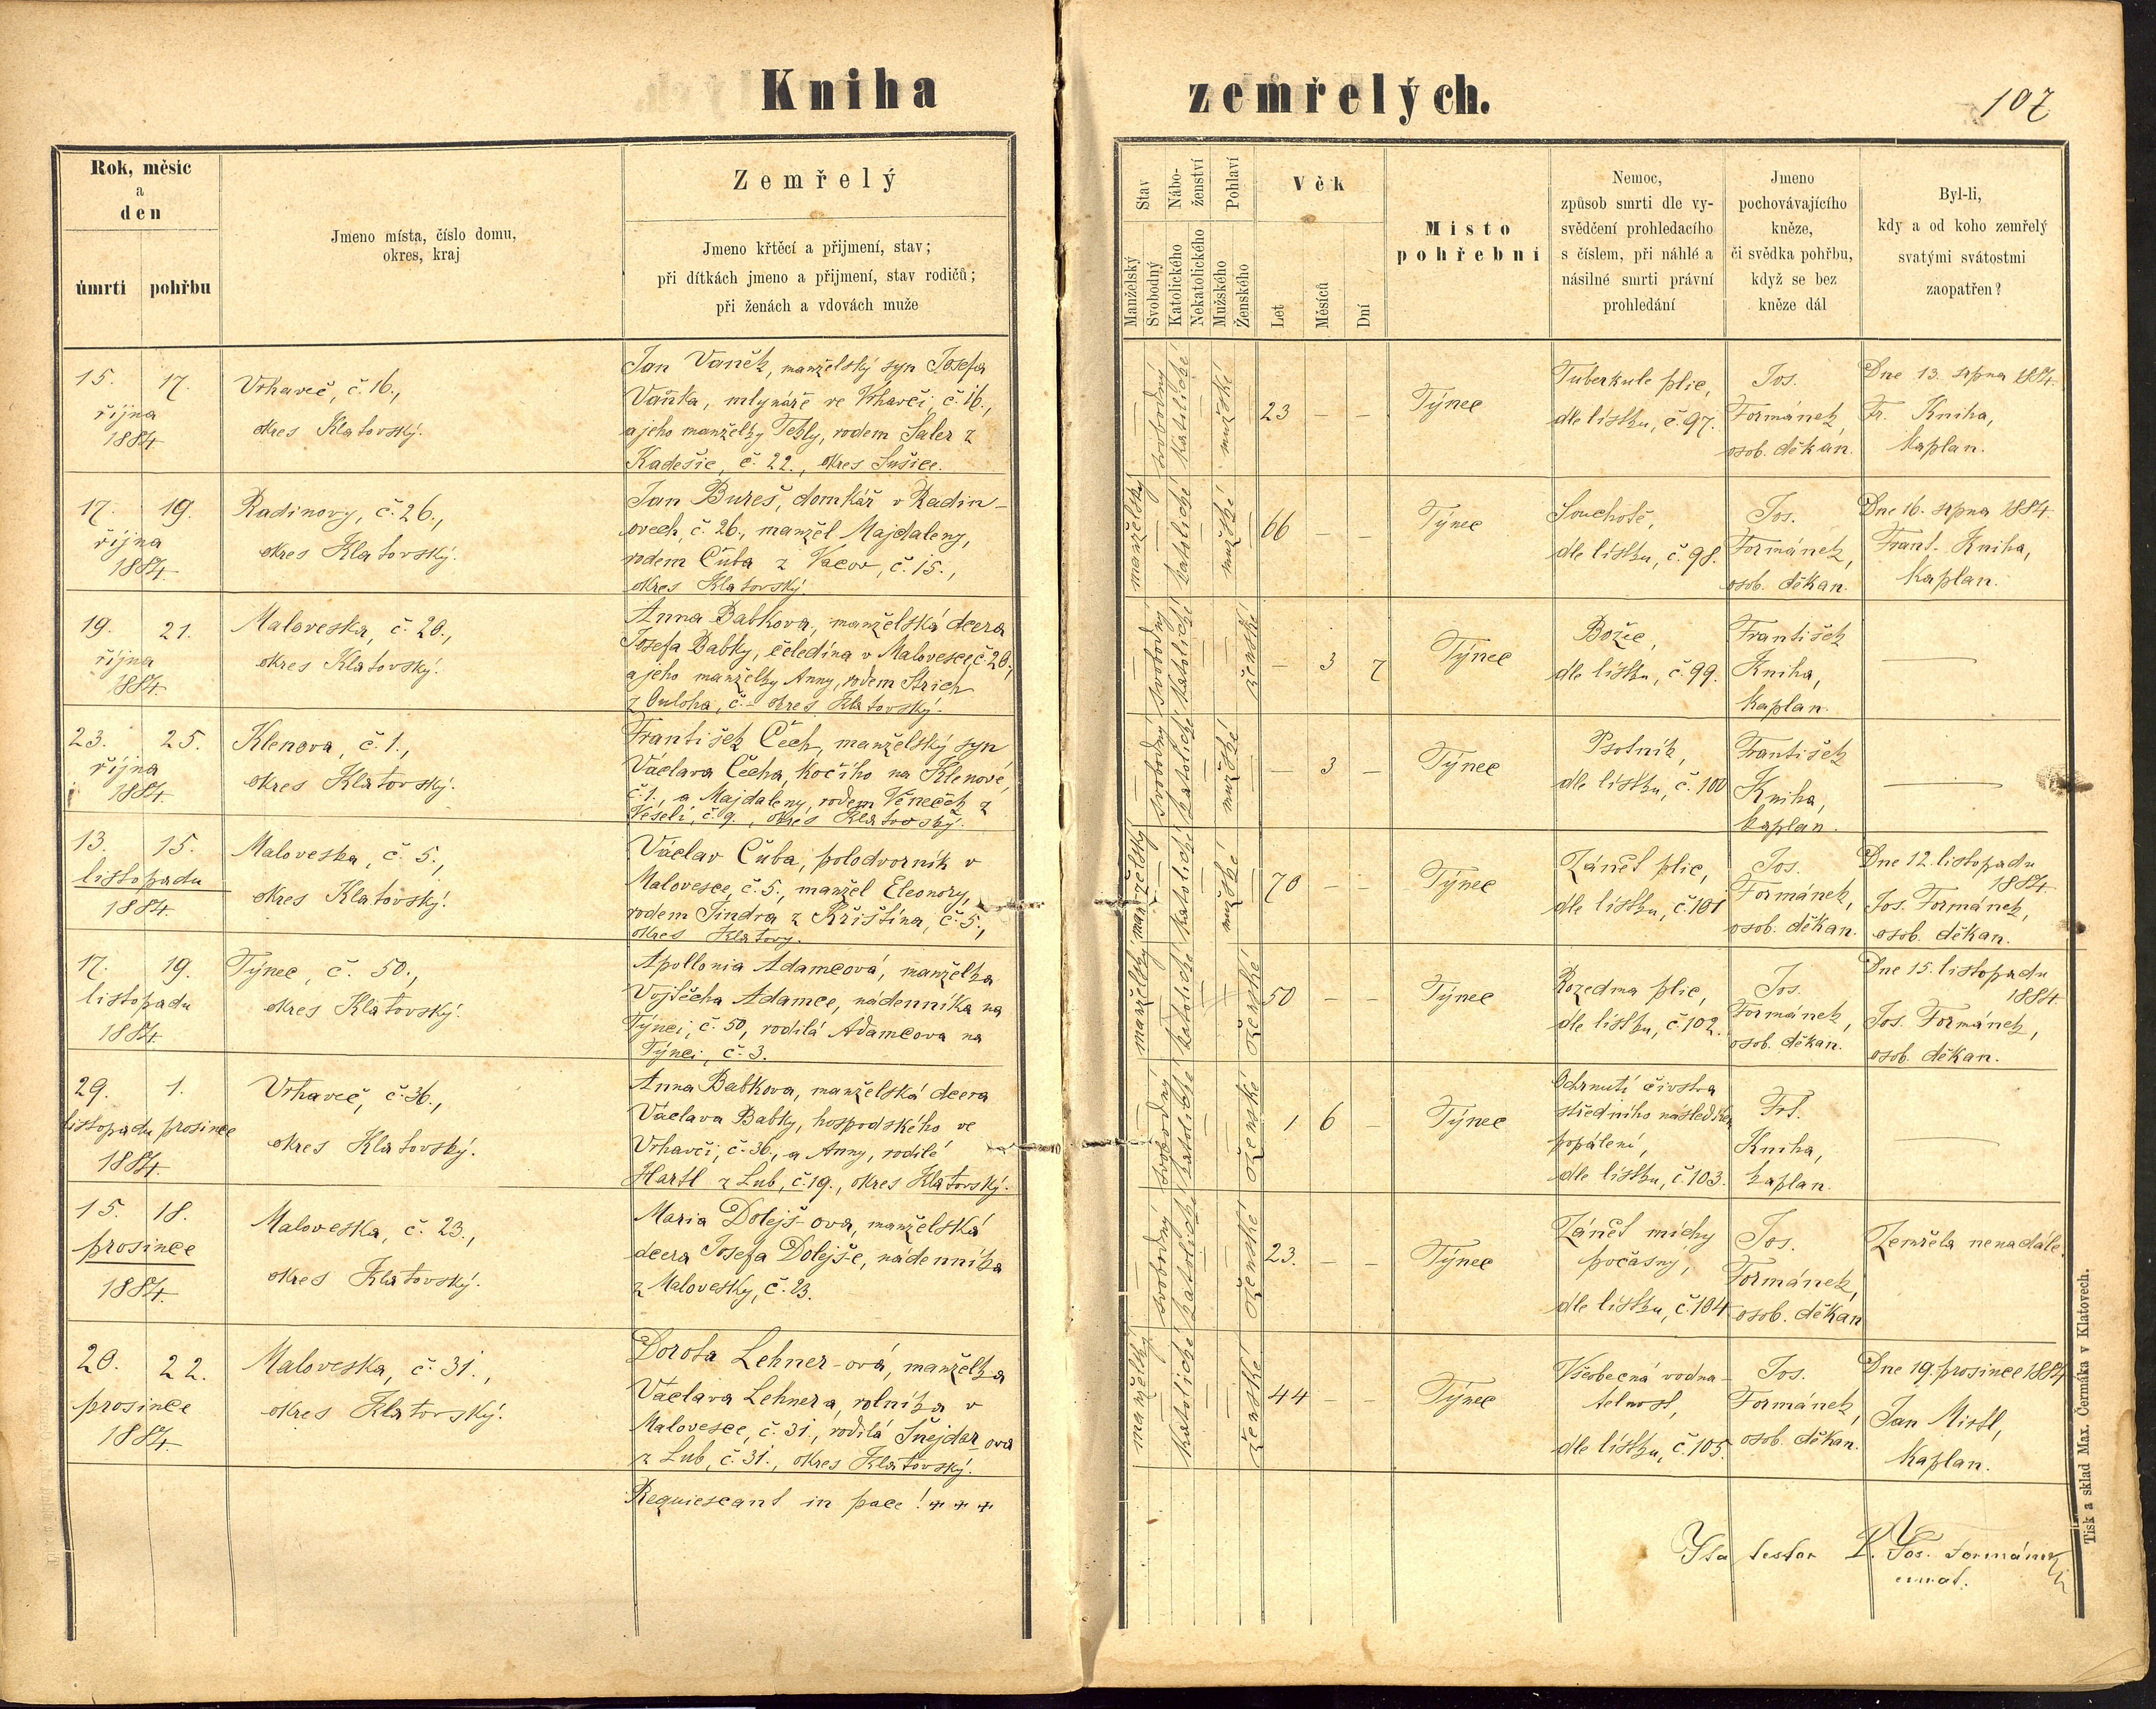 Kniha zemřelých.
107
Rok, měsíc
a
den
úmrtí
pohřbu
Jmeno místa, číslo domu,
okres, kraj
Zemřelý
Jmeno křtěcí a přijmení, stav;
při dítkách jmeno a přijmení, stav rodičů;
při ženách a vdovách muže
Stav
Manželský
Svobodný
Nábo-
ženství
Katolického
Nekatolického
Pohlaví
Mužského
Ženského
Věk
Let
Měsíců
Dní
Místo
pohřební
Nemoc,
způsob smrti dle vy-
svědčení prohledacího
s číslem, při náhlé a
násilné smrti právní
prohledání
Jmeno
pochovávajícího
kněze,
či svědka pohřbu,
když se bez
kněze dál
Byl-li,
kdy a od koho zemřelý
svatými svátostmi
zaopatřen?
15. 17.
října
1884
Vrhaveč, č. 16.,
okres Klatovský.
Jan Vaněk, manželský syn Josefa
Vaňka, mlynáře ve Vrhavči č. 16.,
a jeho manželky Tekly, rodem Šaler z
Kadešic, č. 22., okres Sušice.
— svobodný katolické — mužské —
23 — —
Týnec
Tuberkule plic,
dle lístku, č. 97.
Jos.
Formánek,
osob. děkan.
Dne 13. srpna 1884.
Fr. Kniha,
kaplan.
17. 19.
října
1884
Radinovy, č. 26.,
okres Klatovský.
Jan Bureš, domkář v Radin-
ovech, č. 26., manžel Majdaleny,
rodem Čuba z Vacov, č. 15.,
okres Klatovský
manželský — katolické — mužské —
66 — —
Týnec
Souchotě,
dle lístku, č. 98.
Jos.
Formánek,
osob. děkan.
Dne 16. srpna 1884.
Frant. Kniha,
kaplan.
19. 21.
října
1884.
Maloveska, č. 20.,
okres Klatovský.
Anna Babkova, manželská dcera
Josefa Babky, čeledína v Malovesce, č. 20.,
a jeho manželky Anny, rodem Strich
z Ouloha, č. - okres Klatovský.
— svobodný katolické — — ženské
— 3 7
Týnec
Božec,
dle lístku, č. 99.
František
Kniha,
kaplan.
—
23. 25.
října
1884.
Klenova, č. 1.,
okres Klatovský.
František Čech, manželský syn
Václava Čecha, kočího na Klenové,
č. 1., a Majdaleny, rodem Veneček z
Veselí, č. 9., okres Klatovský.
— svobodný katolické — mužské —
— 3 —
Týnec
Psotník,
dle lístku, č. 100
František
Kniha,
kaplan.
—
13. 15.
listopadu
1884.
Maloveska, č. 5.,
okres Klatovský.
Václav Čuba, polodvorník v
Malovesce, č. 5., manžel Eleonory,
rodem Jindra z Křištína, č. 5.,
okres Klatovy.
manželský — katolické — mužské —
70 — —
Týnec
Zánět plic,
dle lístku, č. 101
Jos.
Formánek,
osob. děkan.
Dne 12. listopadu
1884.
Jos. Formánek,
osob. děkan.
17. 19.
listopadu
1884
Týnec, č. 50.,
okres Klatovský.
Apollonia Adamcová, manželka
Vojtěcha Adamce, nádenníka na
Týnci, č. 50, rodilá Adamcova na
Týnci, č. 3.
manželský — katolické — — ženské
50 — —
Týnec
Rozedma plic,
dle lístku, č. 102.
Jos.
Formánek,
osob. děkan.
Dne 15. listopadu
1884.
Jos. Formánek,
osob. děkan.
29. 1.
listopadu prosince
1884.
Vrhaveč, č. 36.,
okres Klatovský.
Anna Babkova, manželská dcera
Václava Babky, hospodského ve
Vrhavči, č. 36., a Anny, rodilé
Hartl z Lub, č. 19., okres Klatovský.
— svobodný katolické — — ženské
1 6 —
Týnec
Ochrnutí čivstva
středního následkem
popálení,
dle lístku, č. 103.
Frt.
Kniha,
kaplan.
—
15. 18.
prosince
1884.
Maloveska, č. 23.,
okres Klatovský.
Maria Dolejš-ova, manželská
dcera Josefa Dolejše, nádenníka
z Malovesky, č. 23.
— svobodný katolické — — ženské
23. — —
Týnec
Zánět míchy
počasný,
dle lístku, č. 104
Jos.
Formánek,
osob. děkan
Zemřela nenadále.
20. 22.
prosince
1884.
Maloveska, č. 31.,
okres Klatovský.
Dorota Lehner-ová, manželka
Václava Lehnera, rolníka v
Malovesce, č. 31., rodilá Šnejdar-ova
z Lub, č. 31., okres Klatovský.
manželský — katolické — — ženské
44 — —
Týnec
Všeobecná vodna-
telnost,
dle lístku, č. 105.
Jos.
Formánek,
osob. děkan.
Dne 19. prosince 1884
Jan Mistl,
kaplan.
Requiescant in pace! + + +
Ita testor P. Jos. Formánek
Tisk a sklad Max. Čermáka v Klatovech.